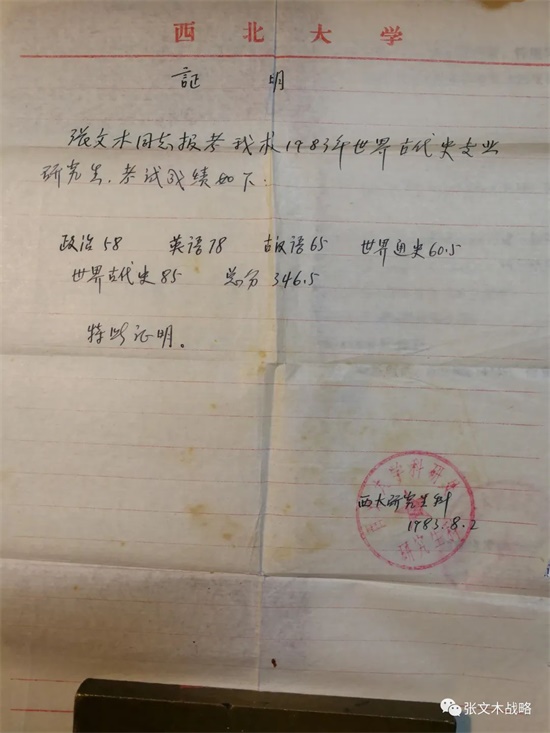 西北大学
証 明
张文木同志报考我校1983年世界古代史专业
研究生,考试成绩如下:
政治58 英语78 古汉语65 世界通史60.5
世界古代史85 总分346.5
特此证明。
西大研究生科
1983.8.2
学科研
研究生科
张文木战略